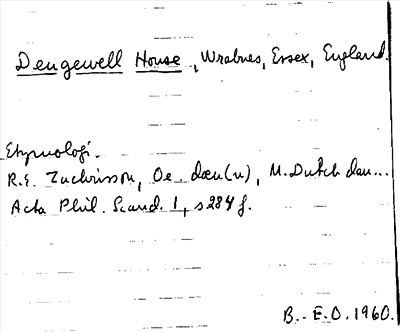 Dengewell House, Wrabnes, Essex, England.
Etymologi.
R.E. Zachrisson, Oe. dæn(n), M.Dutch dan...
Acta Phil. Scand. 1, s 284 f.
B. E.O. 1960.